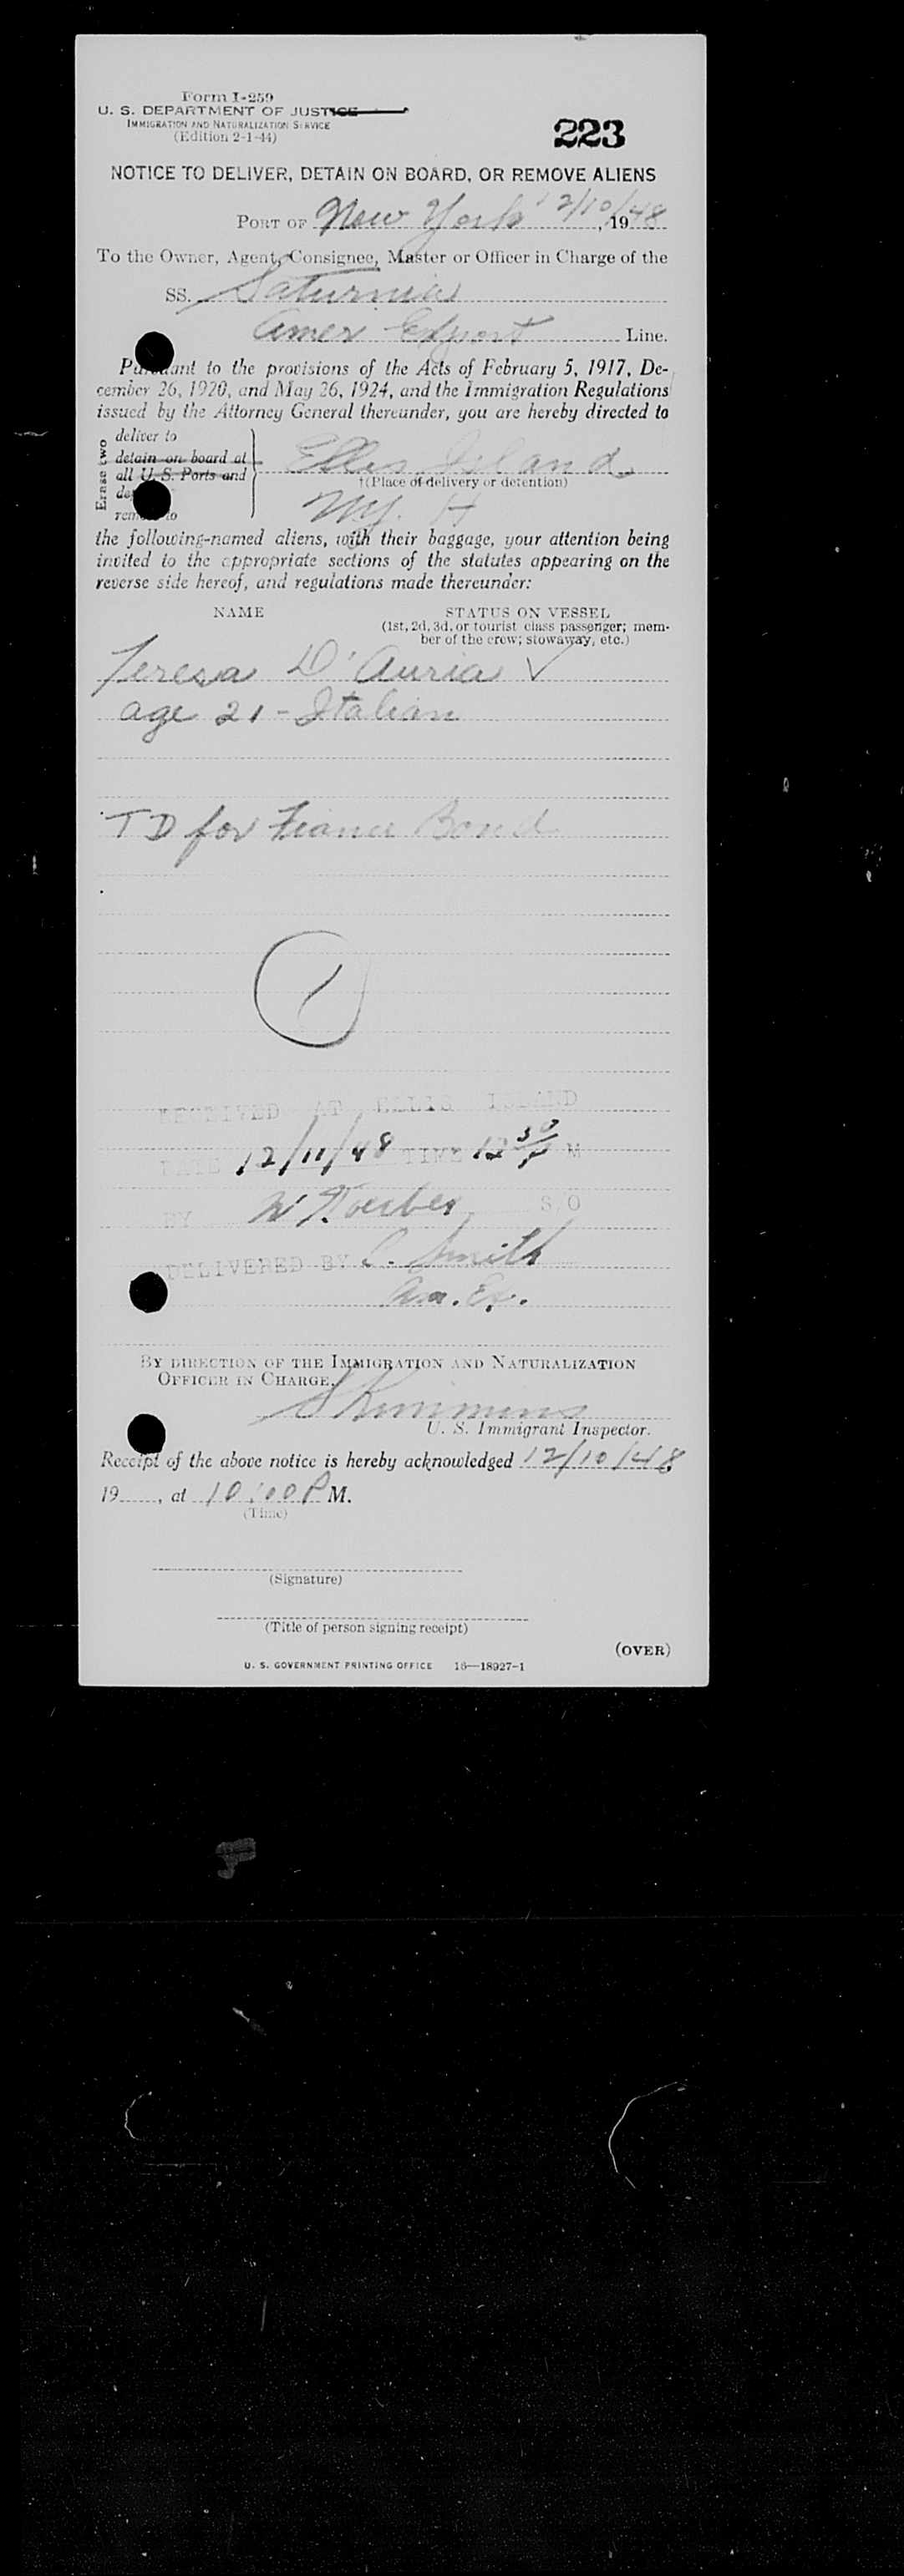 Form I-259
U. S. DEPARTMENT OF JUSTICE
IMMIGRATION AND NATURALIZATION SERVICE
(Edition 2-1-44)
223
NOTICE TO DELIVER, DETAIN ON BOARD, OR REMOVE ALIENS
PORT OF New York 12/10/, 1948
To the Owner, Agent, Consignee, Master or Officer in Charge of the
SS. Saturnia
Amer Export Line.
Pursuant to the provisions of the Acts of February 5, 1917, De-
cember 26, 1920, and May 26, 1924, and the Immigration Regulations
issued by the Attorney General thereunder, you are hereby directed to
Erase two
deliver to
detain on board at
all U. S. Ports and
remove to
Ellis Island
†(Place of delivery or detention)
NY. H
the following-named aliens, with their baggage, your attention being
invited to the appropriate sections of the statutes appearing on the
reverse side hereof, and regulations made thereunder:
NAME
STATUS ON VESSEL
(1st, 2d, 3d, or tourist class passenger; mem-
ber of the crew; stowaway, etc.)
Teresa D'Auria ✓
age 21 - Italian
TD for Fiance Bond
1
RECEIVED AT ELLIS ISLAND
DATE 12/11/48 TIME 12 30 P M
BY S/O
DELIVERED BY C. Smith
Am. Ex.
BY DIRECTION OF THE IMMIGRATION AND NATURALIZATION
OFFICER IN CHARGE,
U. S. Immigrant Inspector.
Receipt of the above notice is hereby acknowledged 12/10/48
19......, at 10:00 P M.
(Time)
(Signature)
(Title of person signing receipt)
(OVER)
U. S. GOVERNMENT PRINTING OFFICE 16—18927-1